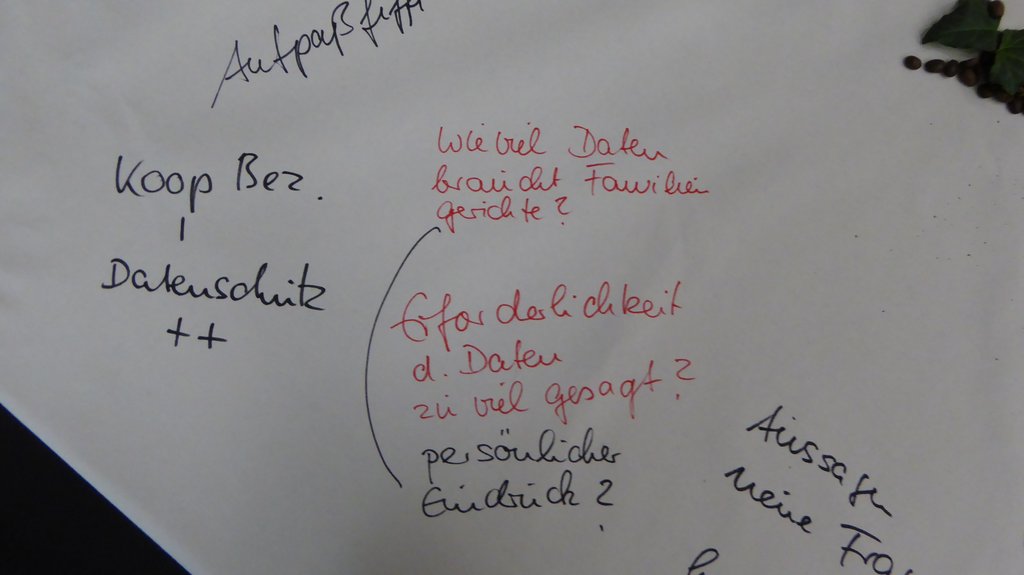 Koop Bez.
Datenschutz
++
Wie viel Daten
braucht Familien
gerichte?
Erforderlichkeit
d. Daten
zu viel gesagt?
persönlicher
Eindruck?
Aussagen
meine